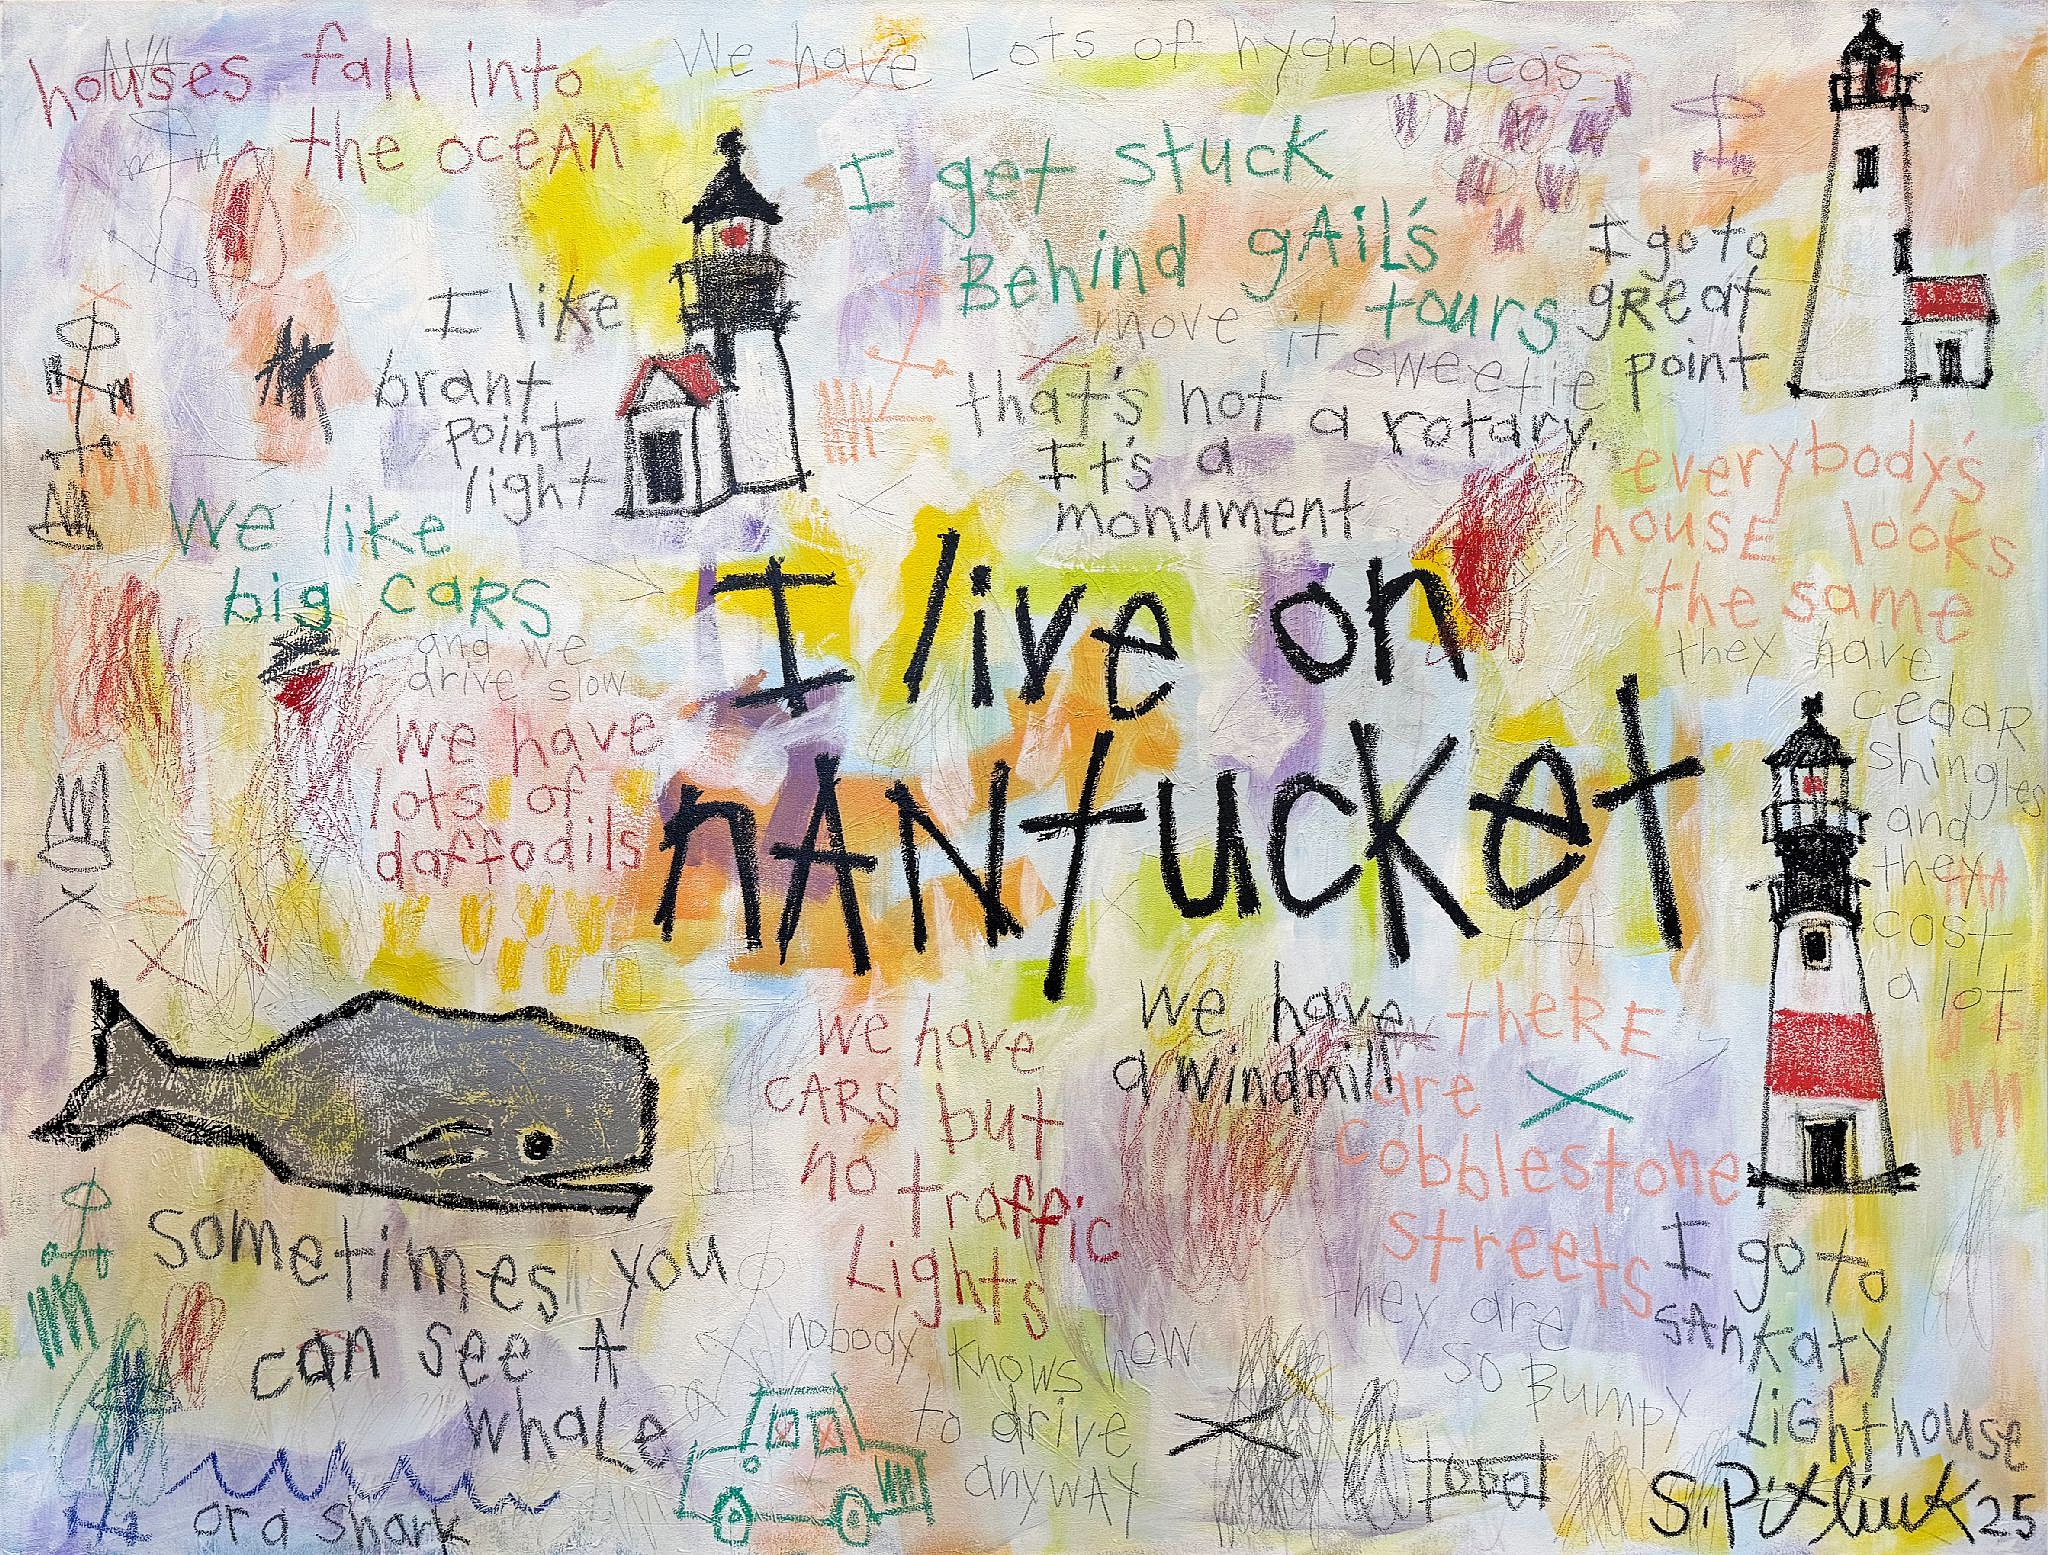 houses fall into
the oceAn
We have Lots of hydrangeas
I get stuck
Behind gAiL's
tours
move it
sweetie
I go to
gREat
point
I like
brant
point
light
that's not a rotary.
It's a
monument
everybody's
houSE looks
the same
they have
cedaR
shingles
and
they
cost
a lot
We like
big caRS
and we
drive slow
We have
lots of
daffodils
I live on
nANtucKet
We have
cARS but
no traffic
Lights
nobody knows how
to drive
anywAY
We have
a windmill
theRE
are
cobblestone
streets
they are
so Bumpy
I go to
SAnkaty
LiGhthouse
Sometimes you
can see A
whaLe
or a shark
S. Pitliuk 25